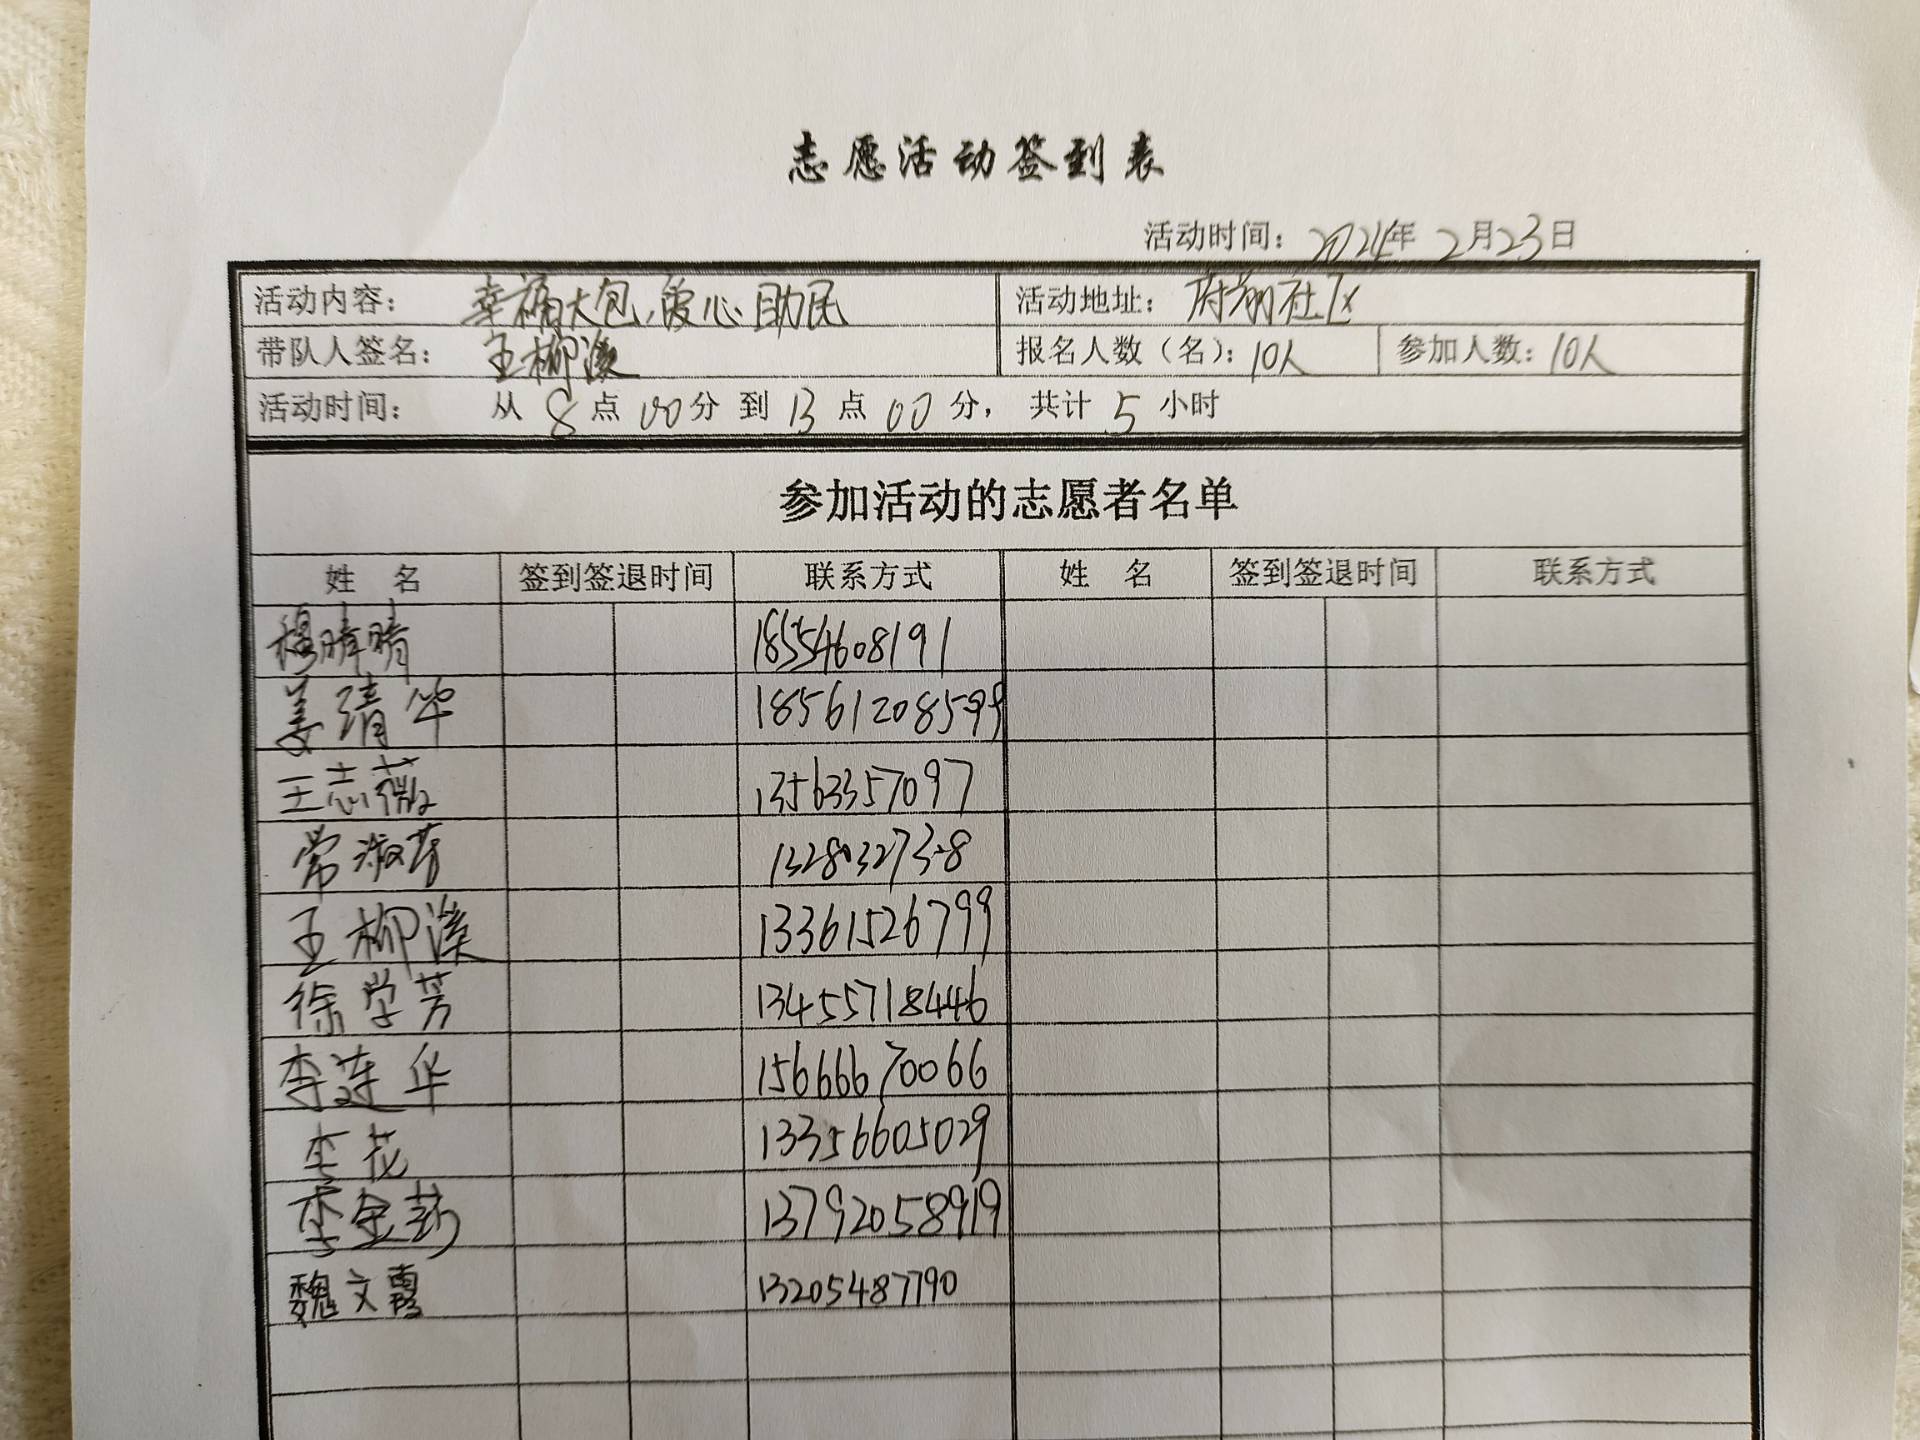 志愿活动签到表
活动时间：2024年2月23日
活动内容： 幸福大包，爱心助民 活动地址： 府前社区
带队人签名： 王柳溪 报名人数（名）：10人 参加人数：10人
活动时间： 从 8 点 00 分 到 13 点 00 分， 共计 5 小时
参加活动的志愿者名单
姓 名 签到签退时间 联系方式 姓 名 签到签退时间 联系方式
穆晴晴 18554608191
姜清华 18561208599
王志薇 13563357097
常淑芳
王柳溪 13361526799
徐学芳 13455718446
李连华 15666670066
李花 13356605029
李金莎 13792058919
魏文霞 13205487790